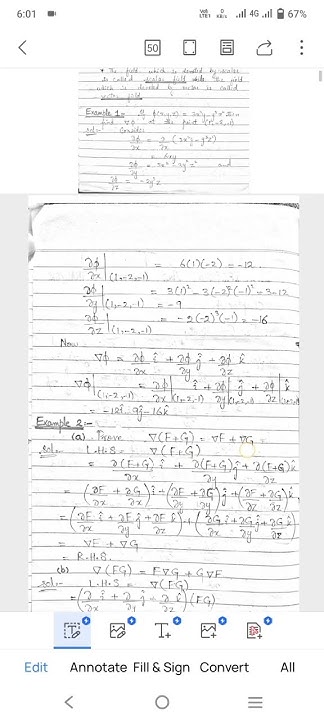 6:01
Vo5G LTE1
0 KB/s
4G
67%
50
* The field which is denoted by scalar
is called scalar field while the field
which is denoted by vector is called
vector field.
Example 1:- If φ(x,y,z) = 3x²y - y³z² then
find ∇φ at the point (1,-2,-1)
sol:- Consider
∂φ/∂x = ∂/∂x (3x²y - y³z²)
= 6xy
∂φ/∂y = 3x² - 3y²z² and
∂φ/∂z = -2y³z
∂φ/∂x |(1,-2,-1) = 6(1)(-2) = -12
∂φ/∂y |(1,-2,-1) = 3(1)² - 3(-2)²(-1)² = 3-12
= -9
∂φ/∂z |(1,-2,-1) = -2(-2)³(-1) = -16
Now
∇φ = ∂φ/∂x î + ∂φ/∂y ĵ + ∂φ/∂z k̂
∇φ|(1,-2,-1) = ∂φ/∂x|(1,-2,-1) î + ∂φ/∂y|(1,-2,-1) ĵ + ∂φ/∂z|(1,-2,-1) k̂
= -12î - 9ĵ - 16k̂
Example 2:-
(a) Prove ∇(F+G) = ∇F + ∇G
sol:- L.H.S = ∇(F+G)
= ∂(F+G)/∂x î + ∂(F+G)/∂y ĵ + ∂(F+G)/∂z k̂
= (∂F/∂x + ∂G/∂x) î + (∂F/∂y + ∂G/∂y) ĵ + (∂F/∂z + ∂G/∂z) k̂
= (∂F/∂x î + ∂F/∂y ĵ + ∂F/∂z k̂) + (∂G/∂x î + ∂G/∂y ĵ + ∂G/∂z k̂)
= ∇F + ∇G
= R.H.S
(b) ∇(FG) = F∇G + G∇F
sol:- L.H.S = ∇(FG)
= (∂/∂x î + ∂/∂y ĵ + ∂/∂z k̂) (FG)
Edit
Annotate
Fill & Sign
Convert
All